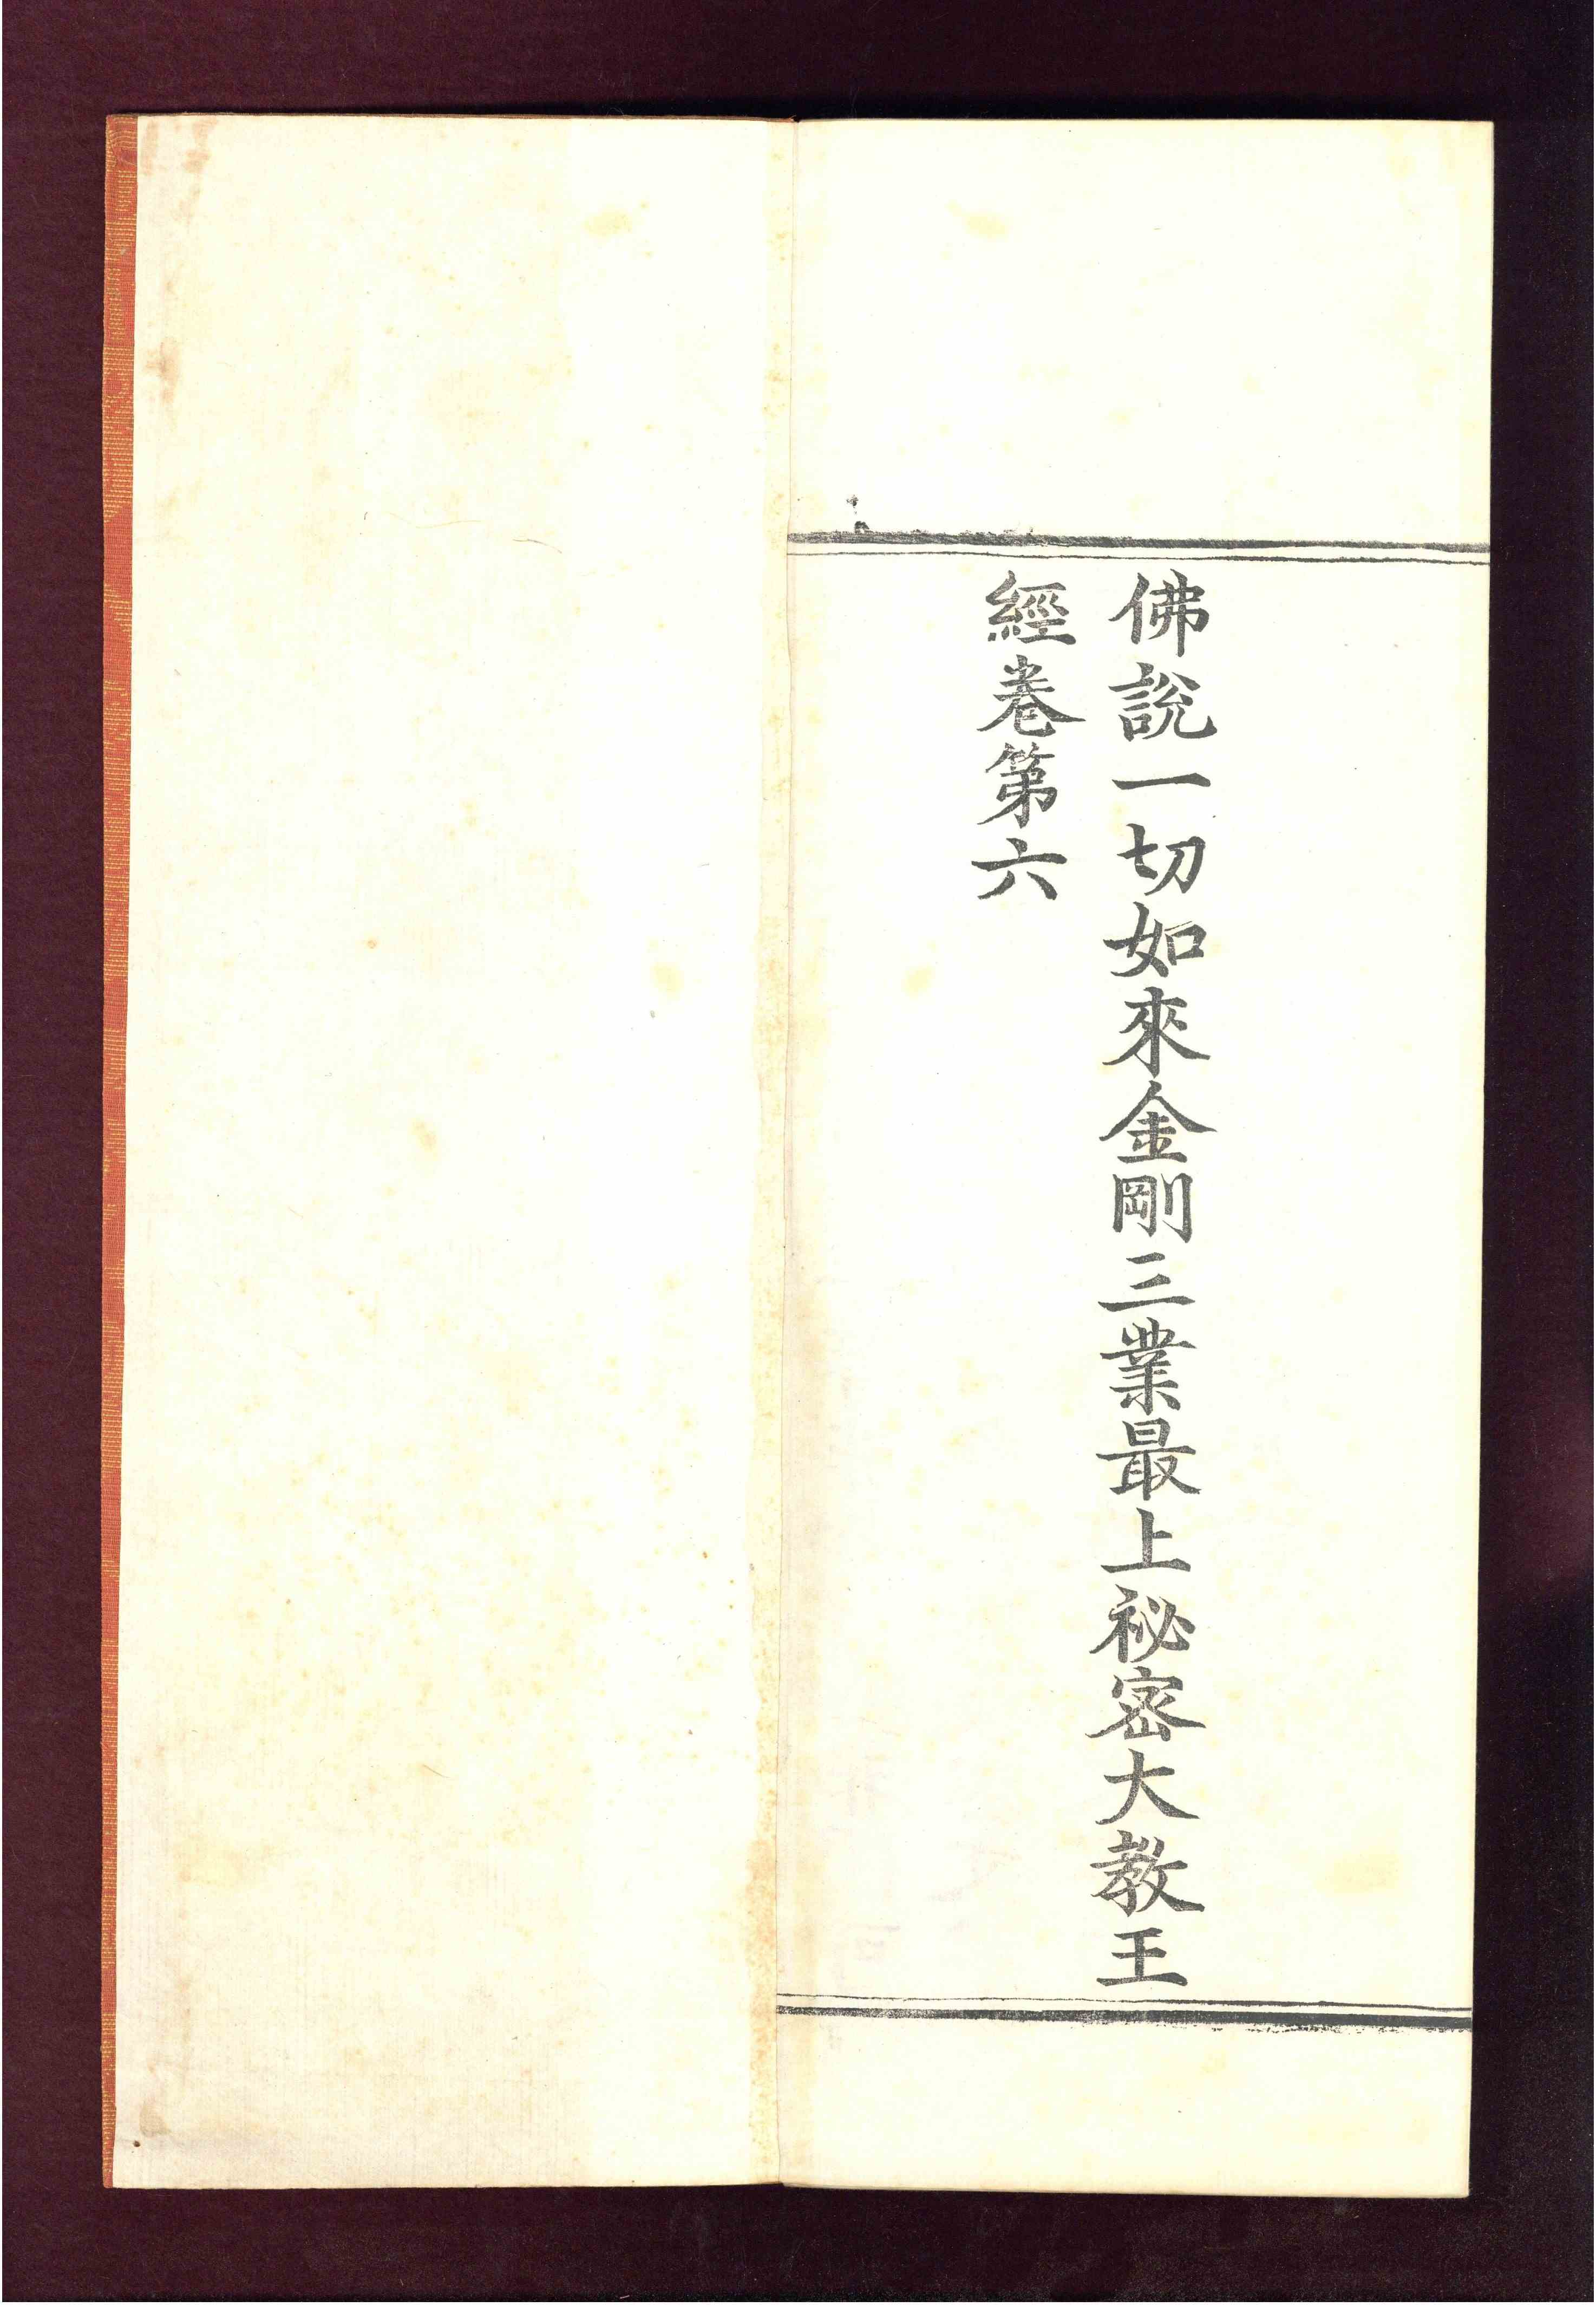 佛說一切如來金剛三業最上祕密大教王
經卷第六